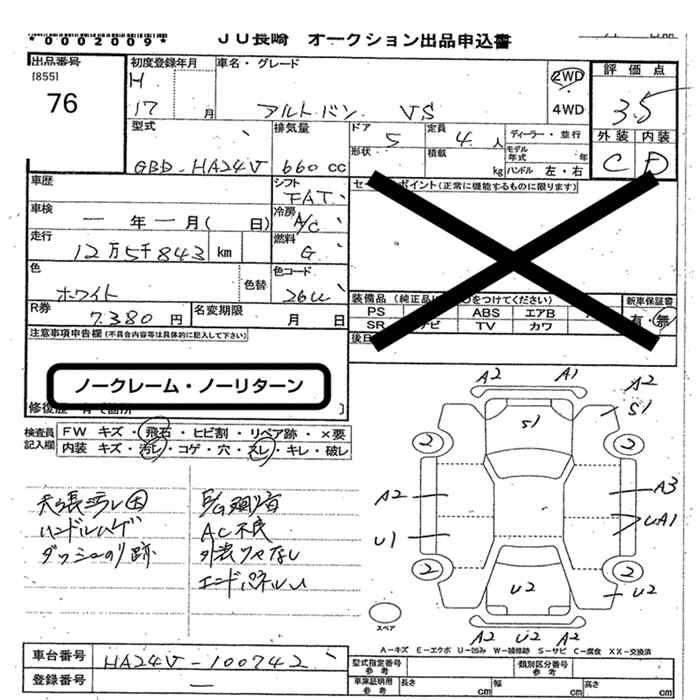 *0002009*
JU長崎 オークション出品申込書
出品番号
[855]
76
初度登録年月
H
17 月
車名・グレード
アルトバン VS
2WD
4WD
評価点
3.5
外装 内装
C D
型式
GBD-HA24V
排気量
660 CC
ドア
5
定員
4 人
形状
積載
kg
ディーラー・並行
モデル年式 年
ハンドル 左・右
車歴
シフト
FAT
セールスポイント(正常に機能するものに限ります)
車検
一 年 一 月( 日)
冷房
A/C
走行
12万5千843 km
燃料
G
色
ホワイト
色替
色コード
26U
R券
7.380 円
名変期限
月 日
装備品 (純正品に○をつけてください)
PS ABS エアB
SR ナビ TV カワ
新車保証書
有・無
後日
注意事項申告欄(不具合内容等は具体的に記入して下さい)
ノークレーム・ノーリターン
修復歴 有 で箇所 ]
検査員記入欄
FW キズ・飛石・ヒビ割・リペア跡・×要
内装 キズ・汚レ・コゲ・穴・スレ・キレ・破レ
天張汚レ大
ハンドルハゲ
ダッシュのり跡
AC不良
外装ツヤなし
エンドパネルU
A2 A1 A2
S1 S1
2 2
A2 A3
U1 UA1
2 2
U2 U2
A2 U2 A2
スペア
A-キズ E-エクボ U-凹み W-補修跡 S-サビ C-腐食 XX-交換済
車台番号
HA24V-100742
登録番号
ー
型式指定番号 参考
類別区分番号 参考
車庫証明用 参考
長さ cm
幅 cm
高さ cm